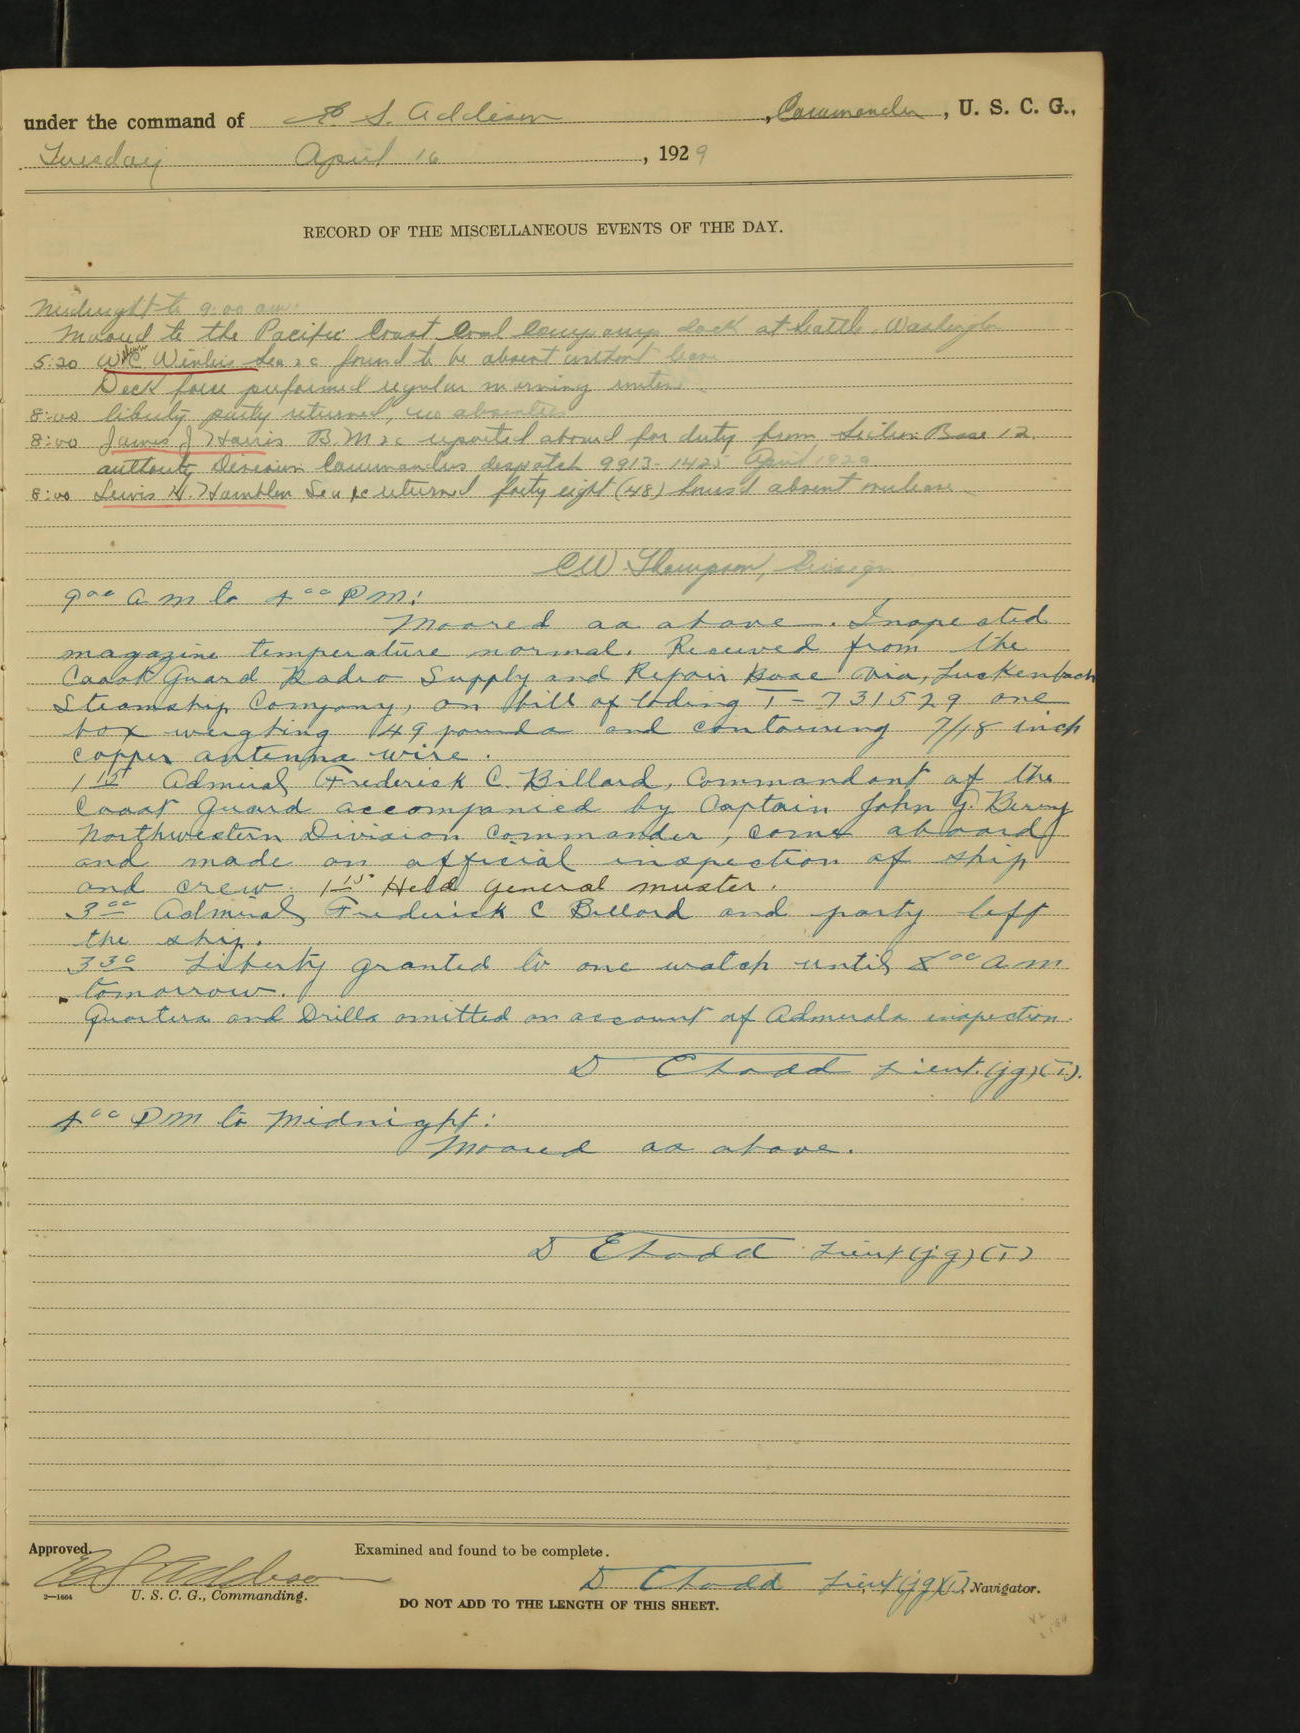 under the command of E. S. Addison, Commander, U. S. C. G.,
Tuesday April 16, 1929
RECORD OF THE MISCELLANEOUS EVENTS OF THE DAY.
Midnight to 9:00 am
Moored to the Pacific Coast Coal Company dock at Seattle, Washington
5:20 W. C. Sea 2c found to be absent without leave
Deck force performed regular morning routine.
8:00 liberty party returned, no absentees
8:00 James J Harris B.M 2c reported aboard for duty from Section Base 12
authority Division Commanders despatch 9913-1425 April 1929
8:00 Lewis H. Hamblen Sea 1c returned forty eight (48) hours absent overleave
C W. Thompson, Ensign
9 00 A M to 4 00 P M:
Moored as above. Inspected
magazine temperature normal. Received from the
Coast Guard Radio Supply and Repair Base via, Luckenbach
Steamship Company, on bill of lading T-731529 one
box weighing 149 pounds and containing 7/18 inch
copper antenna wire.
1 15 Admiral Frederick C. Billard, Commandant of the
Coast Guard accompanied by Captain John G. Berry
Northwestern Division Commander, came aboard
and made an official inspection of ship
and crew. 1 15 Held general muster.
3 00 Admiral Frederick C Billard and party left
the ship.
3 30 Liberty granted to one watch until 8 00 A M
tomorrow.
Quarters and Drills omitted on account of Admirals inspection.
D E Todd Lieut. (jg) (T).
4 00 P M to Midnight:
Moored as above.
D E Todd Lieut (jg) (T)
Approved. Examined and found to be complete.
E S Addison D E Todd Lieut (jg) (T) Navigator.
2—1664 U. S. C. G., Commanding.
DO NOT ADD TO THE LENGTH OF THIS SHEET.